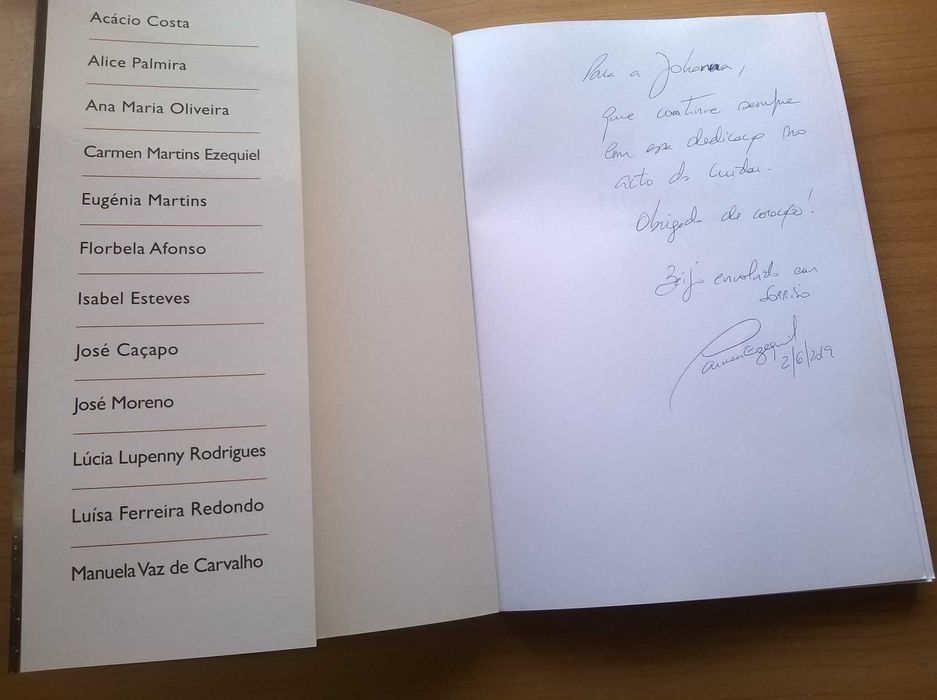 Acácio Costa
Alice Palmira
Ana Maria Oliveira
Carmen Martins Ezequiel
Eugénia Martins
Florbela Afonso
Isabel Esteves
José Caçapo
José Moreno
Lúcia Lupenny Rodrigues
Luísa Ferreira Redondo
Manuela Vaz de Carvalho
Para a Johanna,
que continue sempre
com essa dedicação no
acto do cuidar.
Obrigada de coração!
Beijo envolvido em
sorriso
Carmen Ezequiel
2/6/2019